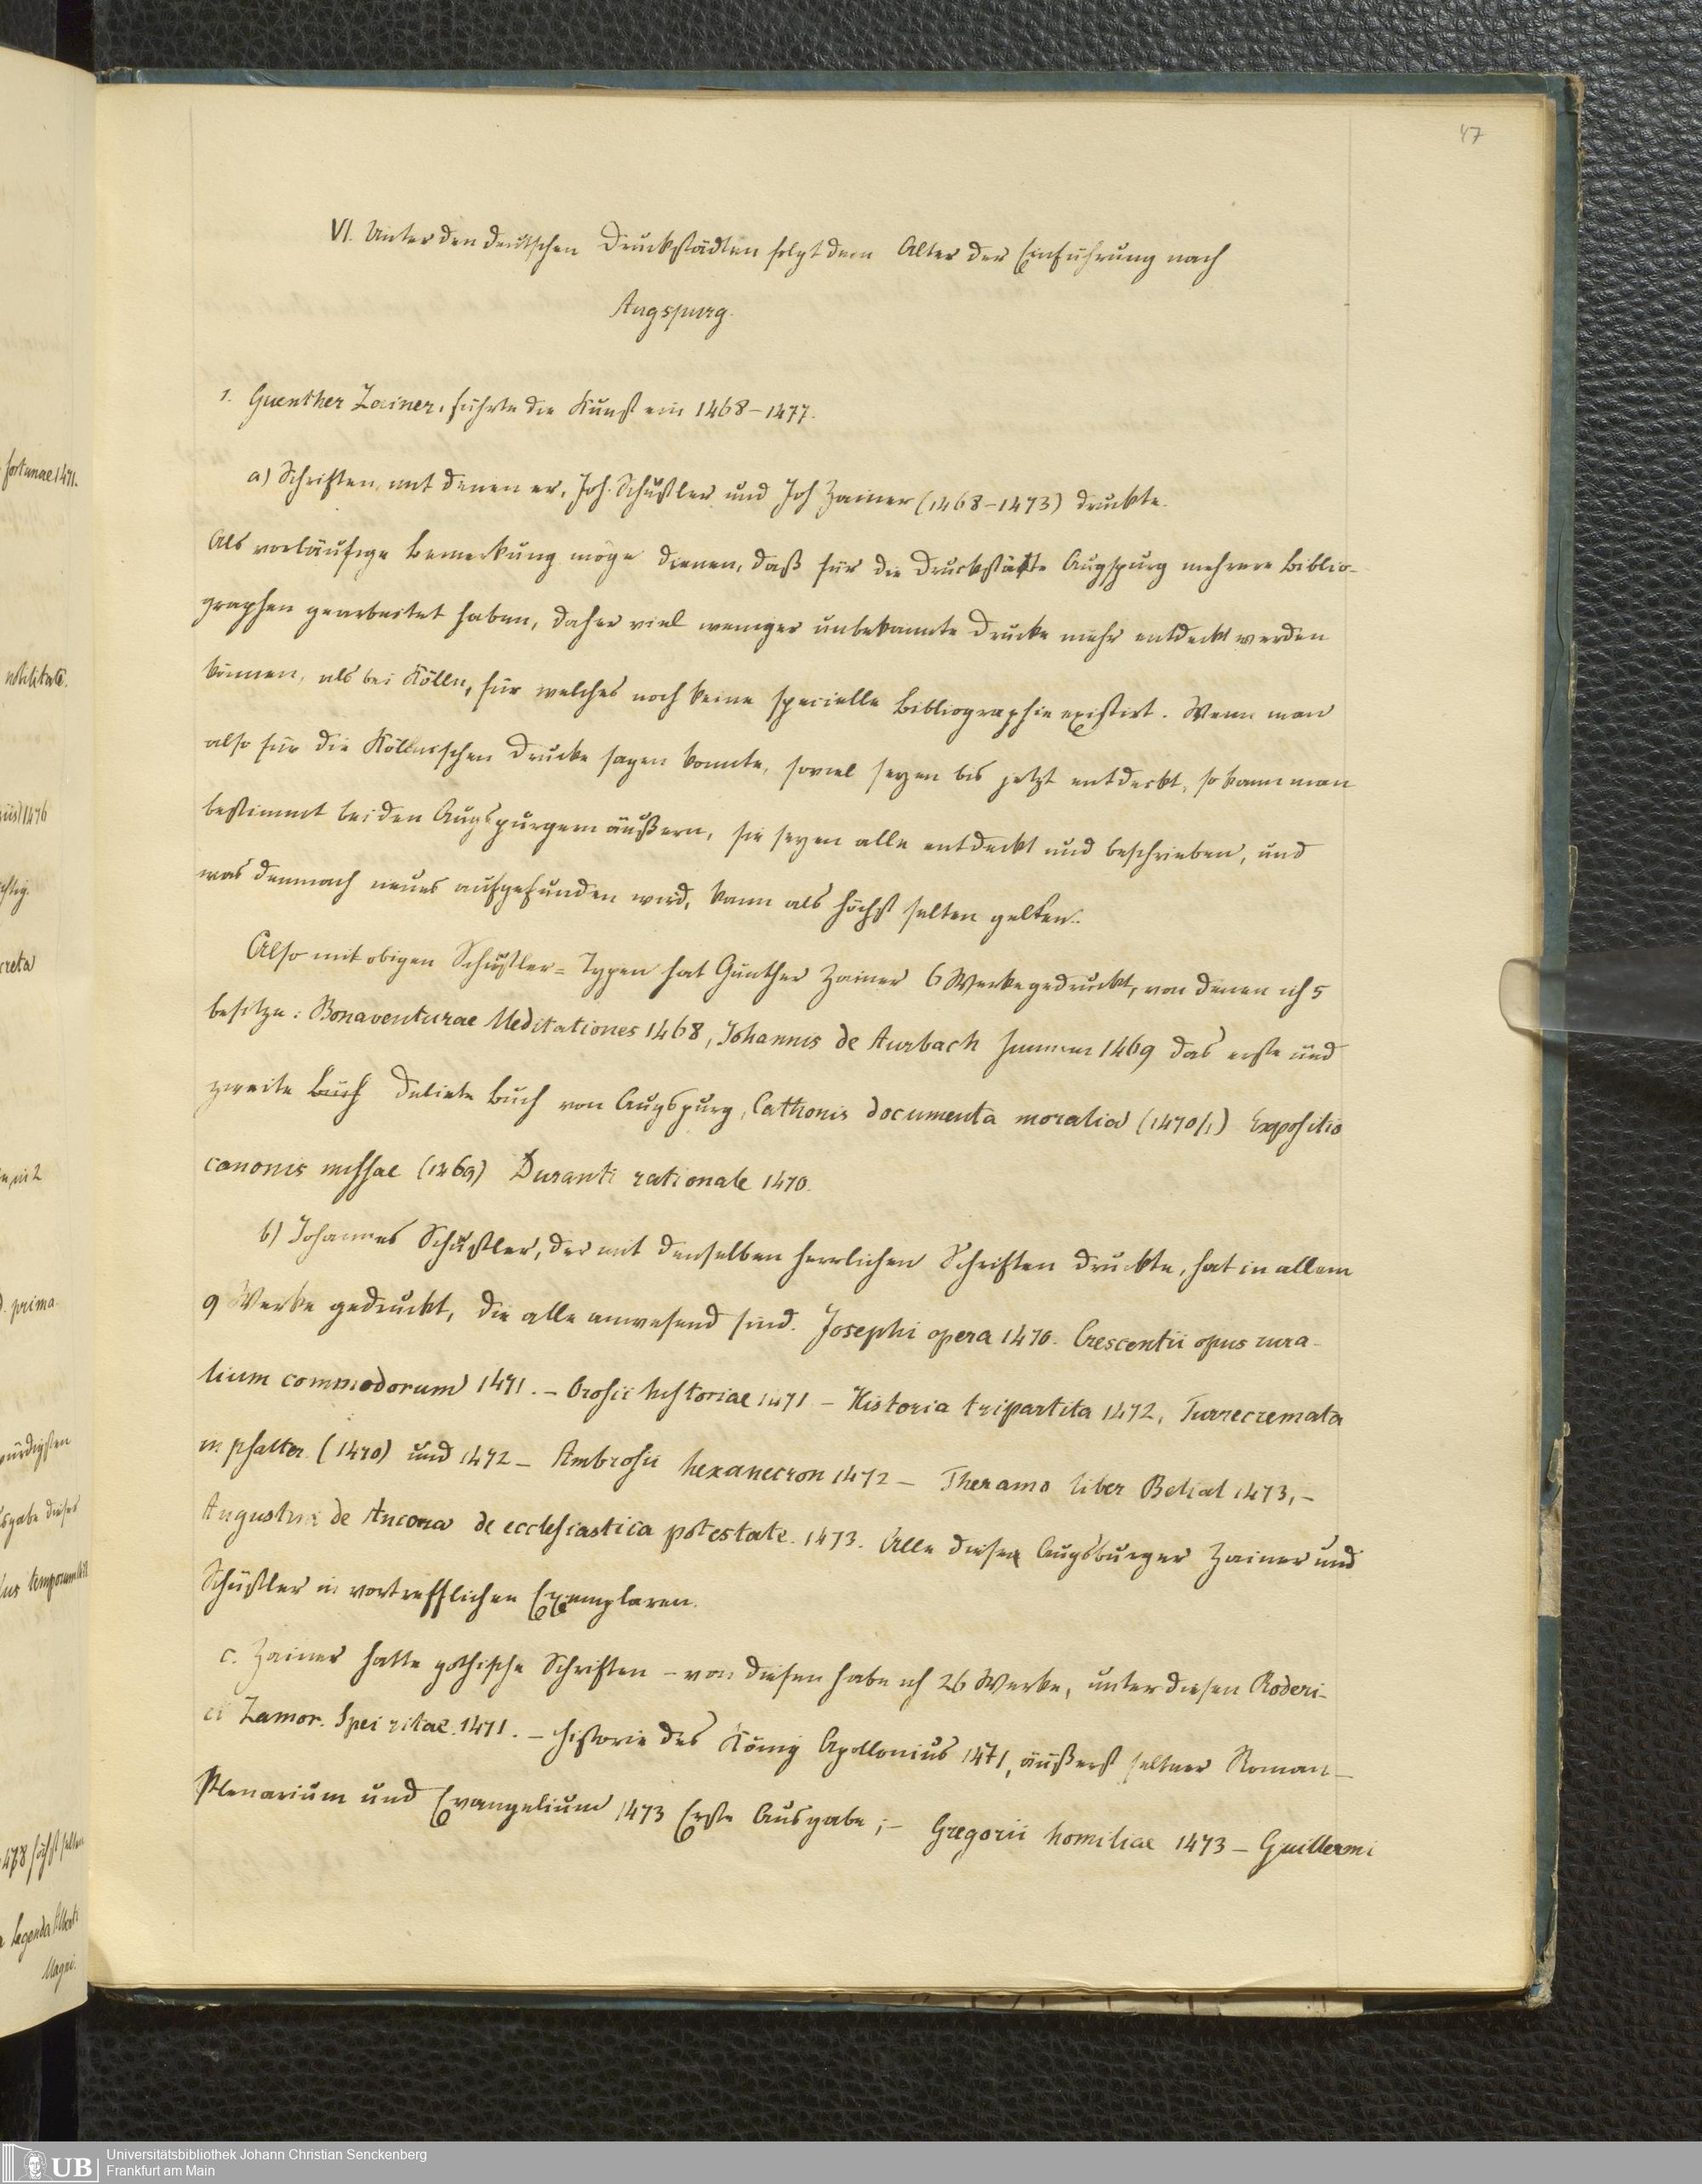 47
VI. Unter den deutschen Druckstädten folgt dem Alter der Einführung nach
Augspurg.
1. Guenther Zainer, führte die Kunst ein 1468–1477.
a) Schriften, mit denen er, Joh. Schüßler und Joh Zainer (1468–1473) druckte.
Als vorläufige Bemerkung möge dienen, daß für die Druckstätte Augspurg mehrere Biblio-
graphen gearbeitet haben, daher viel weniger unbekannte Drucke mehr entdeckt werden
können, als bei Kölln, für welches noch keine specielle Bibliographie existirt. Wenn man
also für die Köllnischen Drucke sagen konnte, soviel seyen bis jetzt entdeckt, so kann man
bestimmt bei den Augspurgern äußern, sie seyen alle entdeckt und beschrieben, und
was demnach neues aufgefunden wird, kann als höchst selten gelten.
Also mit obigen Schüßler=Typen hat Günther Zainer 6 Werke gedruckt, von denen ich 5
besitze: Bonaventurae Meditationes 1468, Johannis de Aurbach Summa 1469 das erste und
zweite Buch datirte Buch von Augspurg, Cathonis documenta moralia (1470/1) Expositio
canonis missae (1469) Duranti rationale 1470.
b) Johannes Schüßler, der mit denselben herrlichen Schriften druckte, hat in allem
9 Werke gedruckt, die alle anwesend sind. Josephi opera 1470. Crescentii opus rura-
lium commodorum 1471. – Orosii historiae 1471 – Historia tripartita 1472, Turrecremata
in psalter. (1470) und 1472 – Ambrosii hexameron 1472 – Theramo liber Belial 1473, –
Augustini de Ancona de ecclesiastica potestate. 1473. Alle diese Augsburger Zainer und
Schüßler in vortrefflichen Exemplaren.
c. Zainer hatte gothische Schriften – von diesen habe ich 26 Werke, unter diesen Roderi-
ci Zamor. Spec vitae. 1471. – Historie des König Apollonius 1471, äußerst seltner Roman –
Plenarium und Evangelium 1473 Erste Ausgabe; – Gregorii homiliae 1473 – Guillermi
fortunae 1471.
nobilitate.
1476
creta
prima
würdigsten
Ausgabe dieses
temporum
höchst selten
Legenda Alberti
Magni.
UB
Universitätsbibliothek Johann Christian Senckenberg
Frankfurt am Main